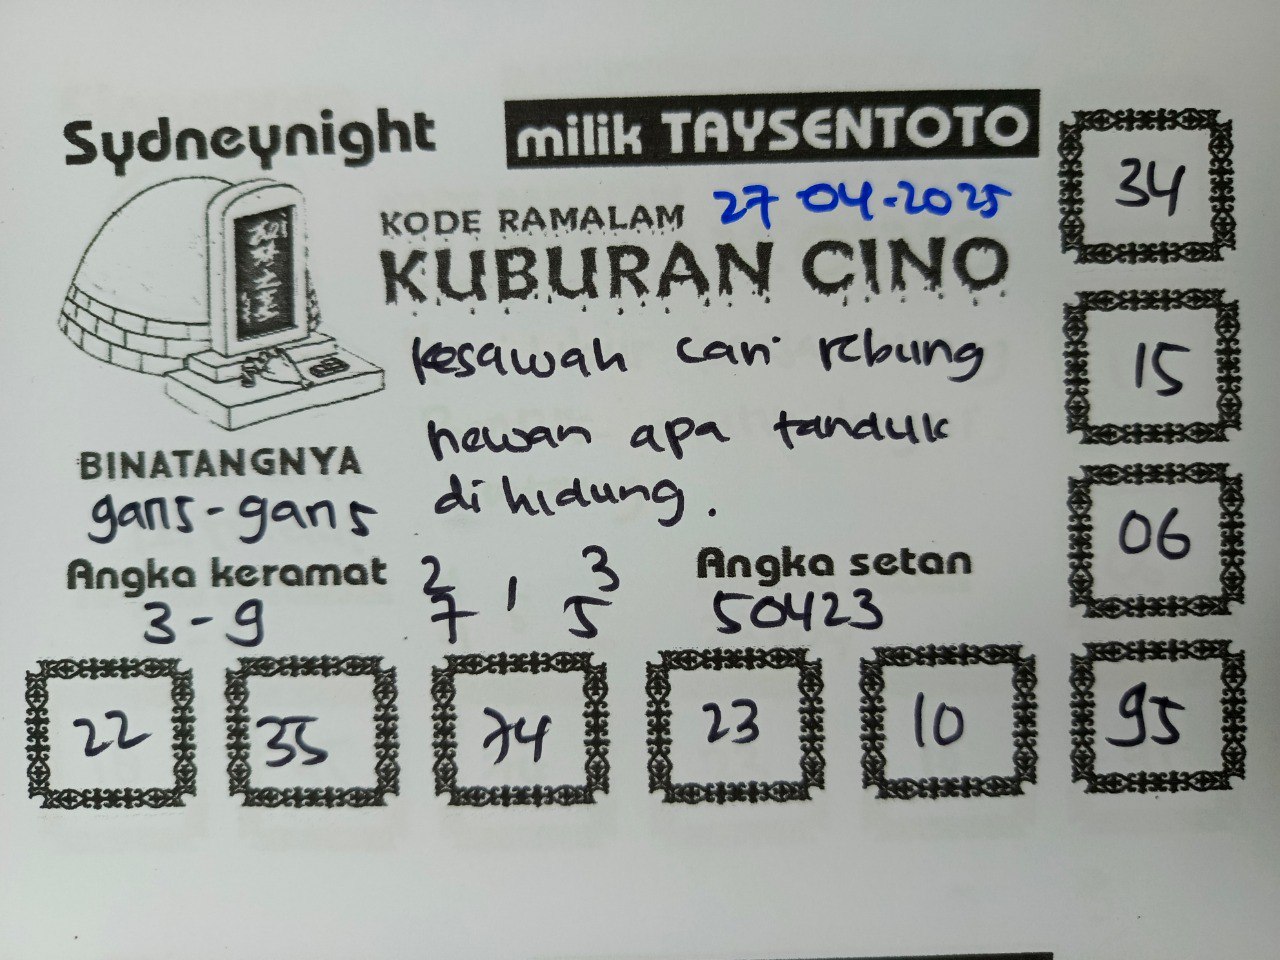 Sydneynight
milik TAYSENTOTO
KODE RAMALAM 27 04-2025
KUBURAN CINO
Kesawah cari rebung
hewan apa tanduk
di hidung.
BINATANGNYA
gans-gans
Angka keramat
3-9
2 , 3
7 5
Angka setan
50423
34
15
06
22 35 74 23 10 95